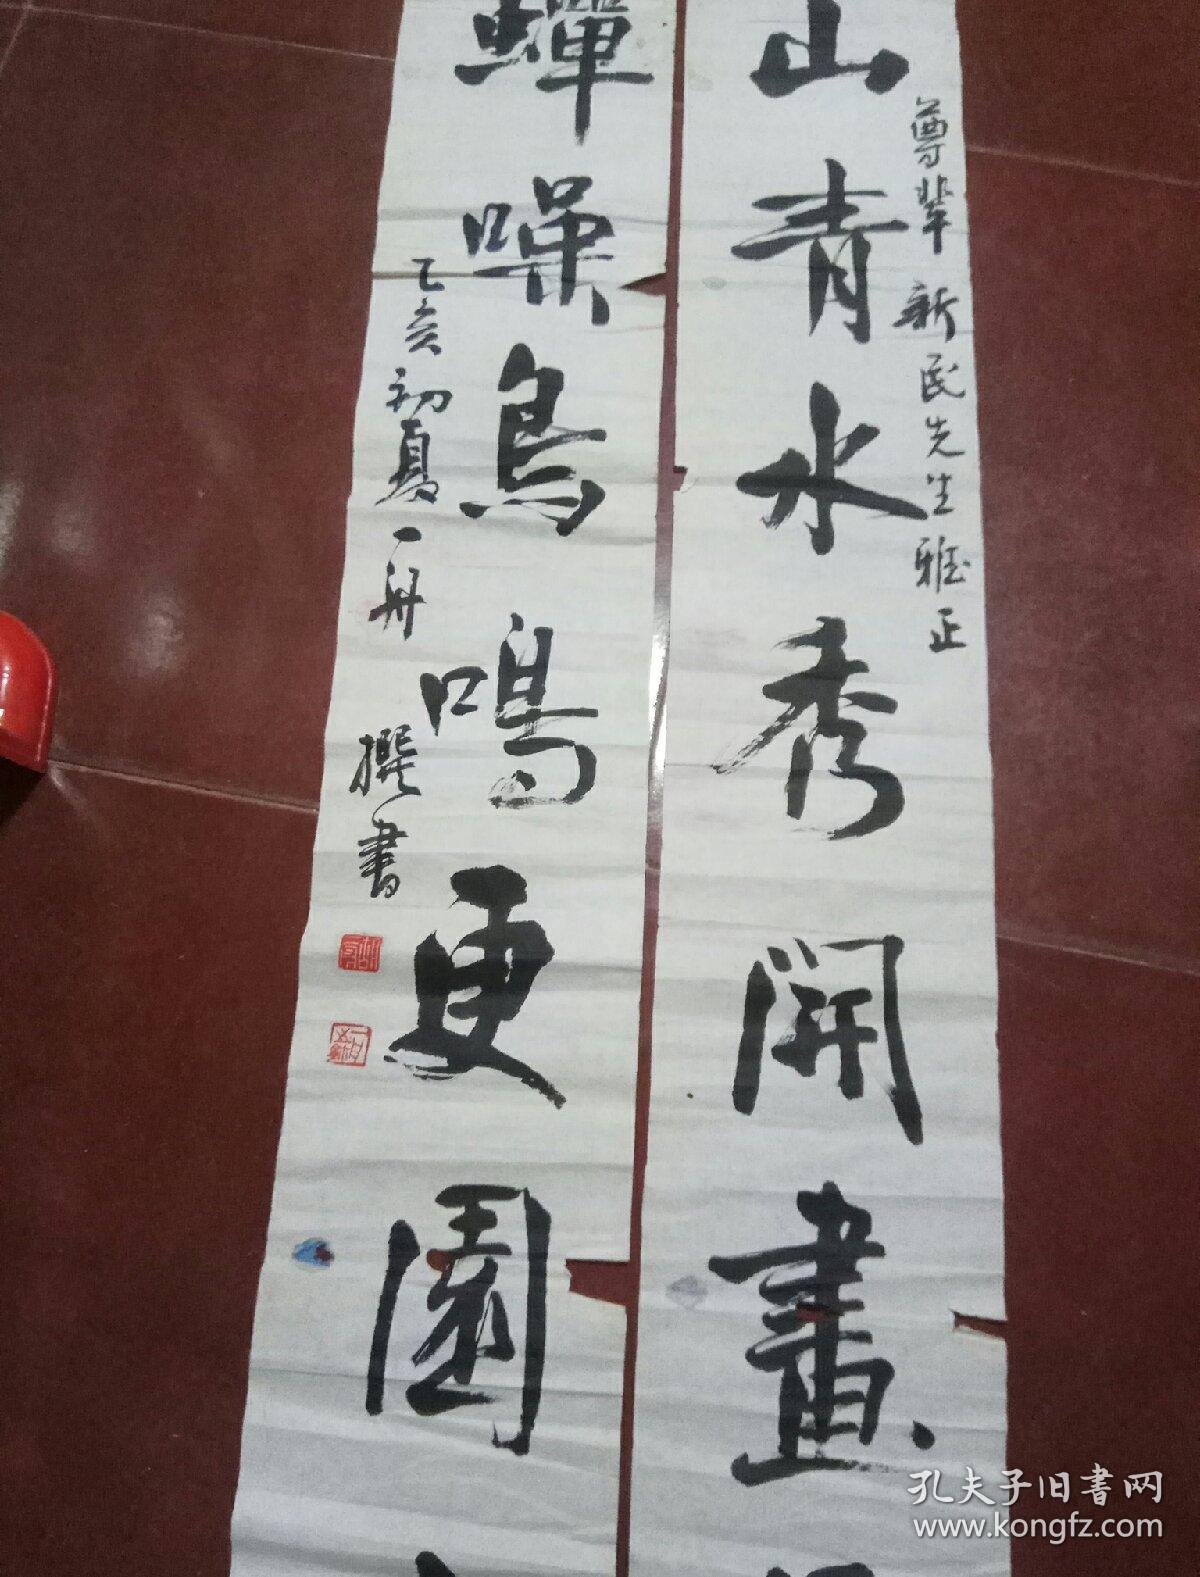 尊辈 新民先生雅正
山青水秀開畫
蟬噪鳥鳴更園
乙亥初夏一舟 撰書
孔夫子旧书网
www.kongfz.com